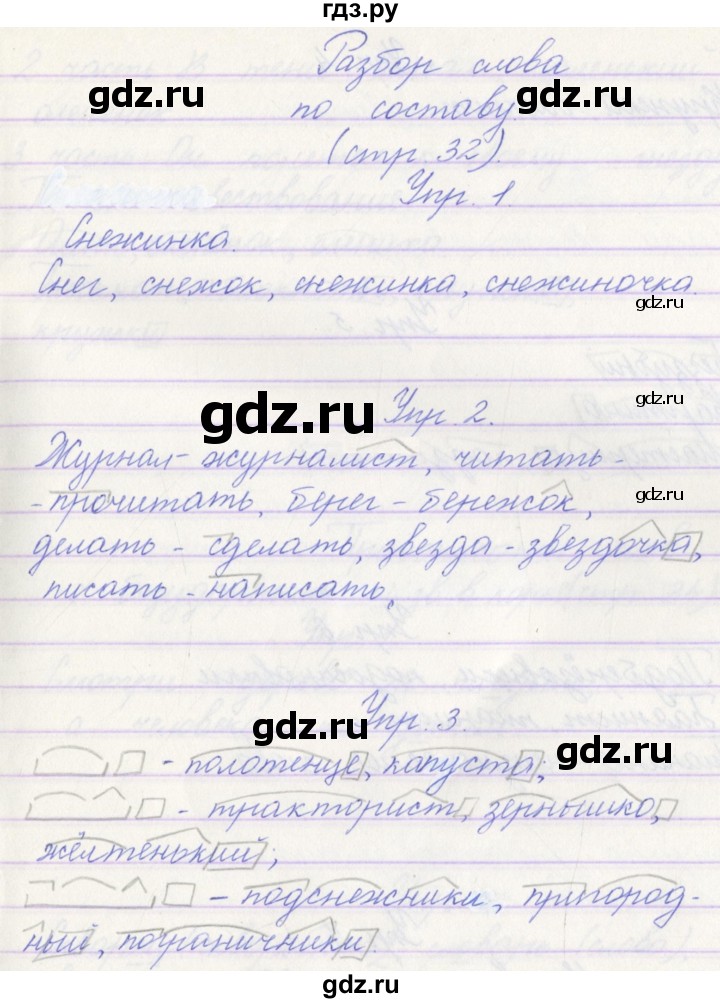 гдз.ру
Разбор слова
gdz.ru
по составу.
gdz.ru
(стр. 32).
Упр. 1.
Снежинка.
Снег, снежок, снежинка, снежиночка.
gdz.ru
gdz.ru
Упр. 2.
Журнал - журналист, читать -
gdz.ru
- прочитать, берег - бережок,
gdz.ru
делать - сделать, звезда - звездочка,
писать - написать.
gdz.ru
Упр. 3.
gdz.ru
- полотенце, капуста;
- тракторист, зернышко,
gdz.ru
жёлтенький;
- подснежники, пригород-
gdz.ru
ный, пограничники.
gdz.ru